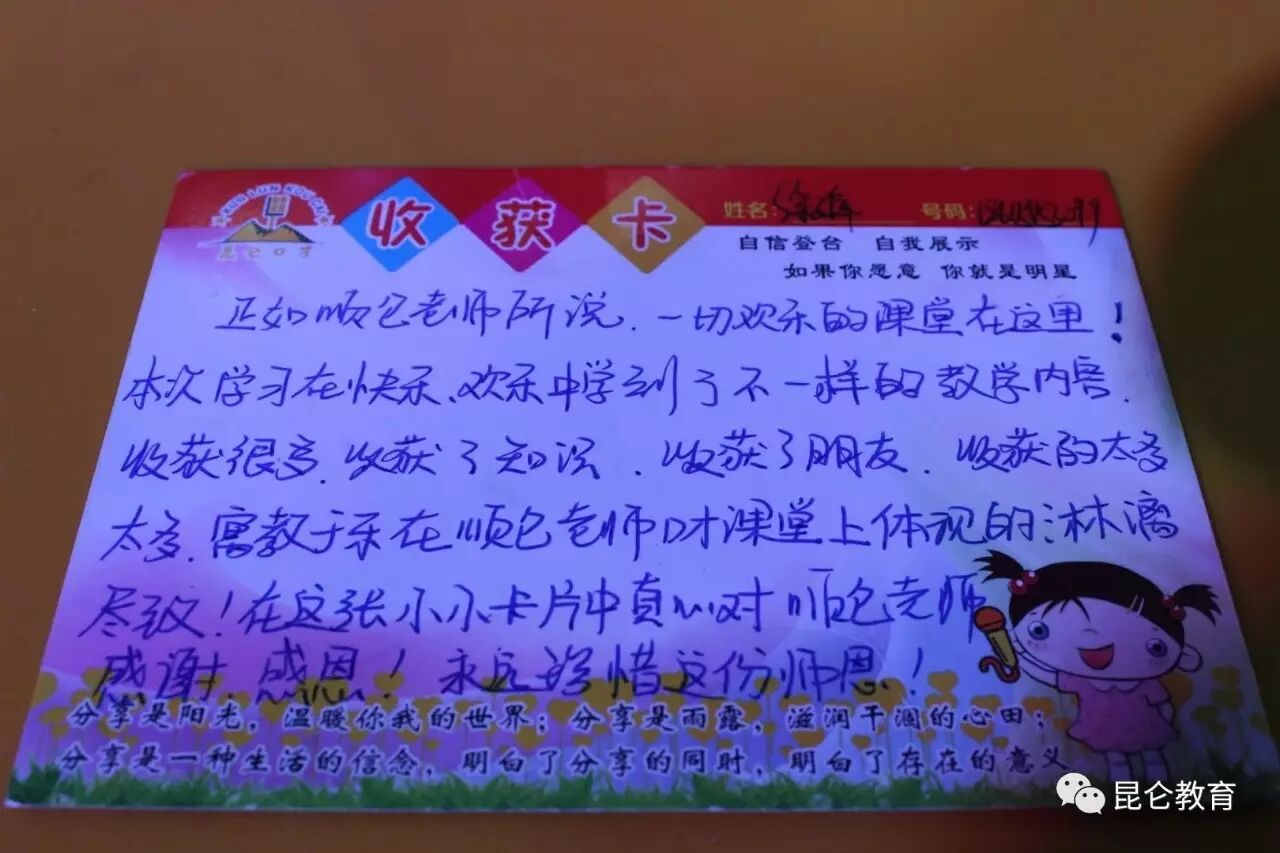 KUN LUN KOU CAI
昆仑口才
收获卡
姓名: 号码:
自信登台 自我展示
如果你愿意 你就是明星
正如顺包老师所说、一切欢乐的课堂在这里!
本次学习在快乐、欢乐中学到了不一样的教学内容.
收获很多.收获了知识、收获了朋友.收获的太多
太多.寓教于乐在顺包老师口才课堂上体现的淋漓
尽致!在这张小小卡片中真心对顺包老师
感谢.感恩!永远珍惜这份师恩!
分享是阳光,温暖你我的世界;分享是雨露,滋润干涸的心田;
分享是一种生活的信念,明白了分享的同时,明白了存在的意义
昆仑教育